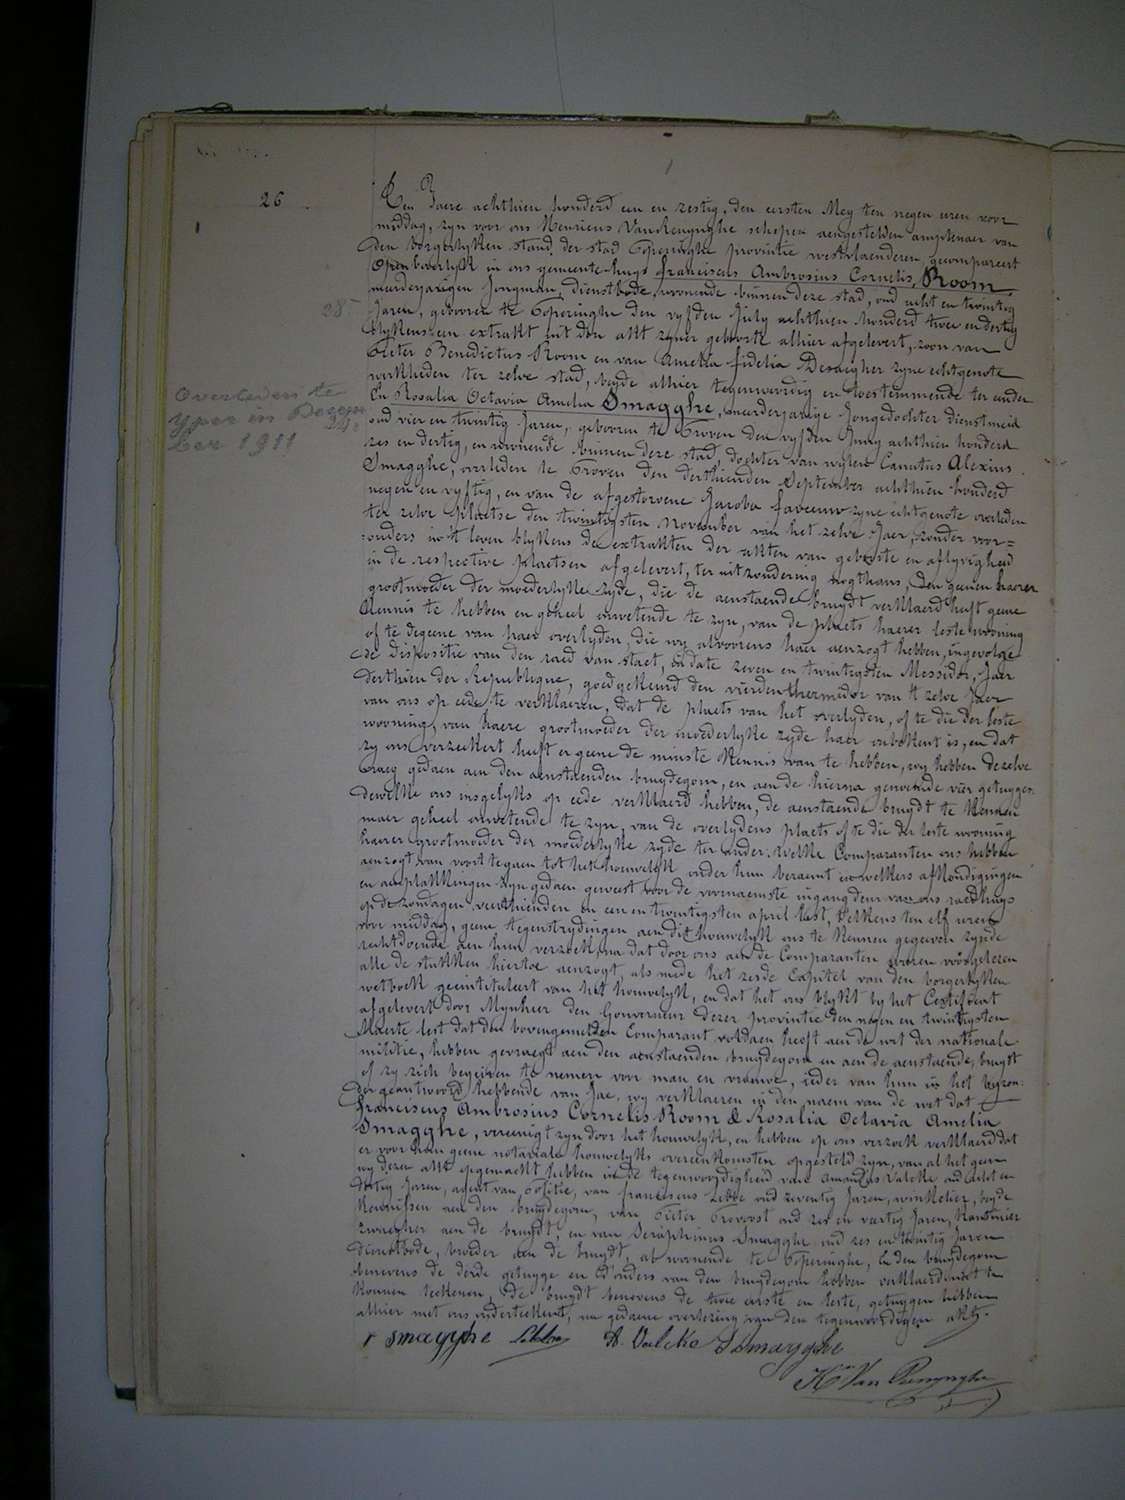 26
Een Jaere achthien honderd een en zestig, den eersten Mey ten negen uren voor
middag, zyn voor ons Henricus Vanrenynghe schepen aengestelden amptenaer van
den borgerlyken stand der stad Poperinghe provintie westvlaenderen, gecompareert
Openbaerlyk in ons gemeente-huys franciscus Ambrosius Cornelis Room
meerderjarigen Jongman, dienstbode, woonende binnen deze stad, oud acht en twintig
Jaren, geboren te Poperinghe den vyfden July achthien honderd twee en dertig
blykens een extrakt uit den akt zyner geboorte alhier afgelevert, zoon van
Pieter Benedictus Room en van Amelia fidelia Desaegher zyne echtgenote
werklieden ter zelve stad, beyde alhier tegenwoordig en toestemmende ter eender
En Rosalia Octavia Amelia Smagghe, meerderjarige Jongedochter dienstmeid
oud vier en twintig Jaren, geboren te Proven den vyfden Juny achthien honderd
zes en dertig, en woonende binnen deze stad, dochter van wylen Canutus Alexius
Smagghe, overleden te Proven den derthienden September achthien honderd
negen en vyftig, en van de afgestorvene Jacoba faveeuw zyne echtgenote overleden
ter zelve plaetse den twintigsten November van het zelve Jaer, zonder voor=
ouders in 't leven blykens de extrakten der akten van geboorte en aflyvigheid
in de respective plaetsen afgelevert, ter uitzondering nogthans, den genen haerer
grootmoeder der moederlyke zyde, die de aenstaende bruydt verklaerd heeft geene
Kennis te hebben en geheel onwetende te zyn, van de plaets haerer leste wooning
of te degene van haer overlyden, die wy alvoorens haer aenzogt hebben, ingevolge
de Dispositie van den raed van staet, in date zeven en twintigsten Messidor, Jaer
derthien der Republique, goedgekeurd den vierden thermidor van 't zelve Jaer
van ons op eede te verklaeren, dat de plaets van het overlyden, of te die der leste
wooning van haere grootmoeder der moederlyke zyde haer onbekent is, en dat
zy ons verzekert heeft er geene de minste Kennis van te hebben, wy hebben dezelve
vraeg gedaen aen den aenstaenden bruydegom, en aen de hierna genoemde vier getuygen
dewelke ons insgelyks op eede verklaerd hebben, de aenstaende bruydt te Kennen
maer geheel onwetende te zyn van de overlydens plaets of te die der leste wooning
haerer grootmoeder der moederlyke zyde ter ander. Welke Comparanten ons hebben
aenzogt van voort te gaen tot het houwelyk onder hun beraemt en welkers afkondigingen
en aenplakkingen zyn gedaen geweest voor de voornaemste ingang deur van ons raedhuys
op de zondagen veerthienden en een en twintigsten april lest, telkens ten elf uren
voor middag, geene tegenstrydingen aen dit houwelyk ons te Kennen gegeven zynde
rechtdoende aen hun verzoek, na dat door ons aen de Comparanten waren voorgelezen
alle de stukken hiertoe aenzogt, als mede het zesde Capitel van den borgerlyken
wetboek geintituleert van het houwelyk, en dat het ons blykt by het Certificaet
afgelevert door Mynheer den Gouverneur dezer provintie den negen en twintigsten
Maerte lest dat den bovengemelden Comparant voldaen heeft aen de wet der nationale
militie, hebben gevraegt aen den aenstaenden bruydegom en aen de aenstaende bruydt
of zy zich begeiren te nemen voor man en vrouwe, ieder van hun in het byzon:
der geantwoord hebbende van Jae, wy verklaeren in den naem van de wet dat
franciscus Ambrosius Cornelis Room & Rosalia Octavia Amelia
Smagghe, vereenigt zyn door het houwelyk, en hebben op ons verzoek verklaerd dat
er voor hun geene notariale houwelyks overeenkomsten opgesteld zyn, van al het geen
wy dezen akt opgemaekt hebben in de tegenwoordigheid van Amandus Valcke oud acht en
dertig Jaren, agent van Politie, van franciscus oud zeventig Jaren, winkelier, beyde
Kennissen aen den bruydegom, van Pieter Provoost oud zes en veertig Jaren, Kantinier
zwaegher aen de bruydt, en van Seriphinus Smagghe oud zes en twintig Jaren
dienstbode, broeder aen de bruydt, al woonende te Poperinghe, En den bruydegom
benevens de derde getuyge en d'ouders van den bruydegom hebben verklaerd niet te
Konnen teekenen, De bruydt benevens de twee eerste en leste, getuygen hebben
alhier met ons onderteekent, na gedaene overlezing van den tegenwoordigen akt.
r Smagghe A. Valcke S Smagghe
Hri Van Renynghe
28
Overleden te
Yper in Decem
ber 1911